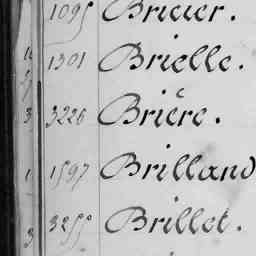 1095 Bricier.
1301 Brielle.
3226 Brière.
1597 Brilland
3255° Brillet.